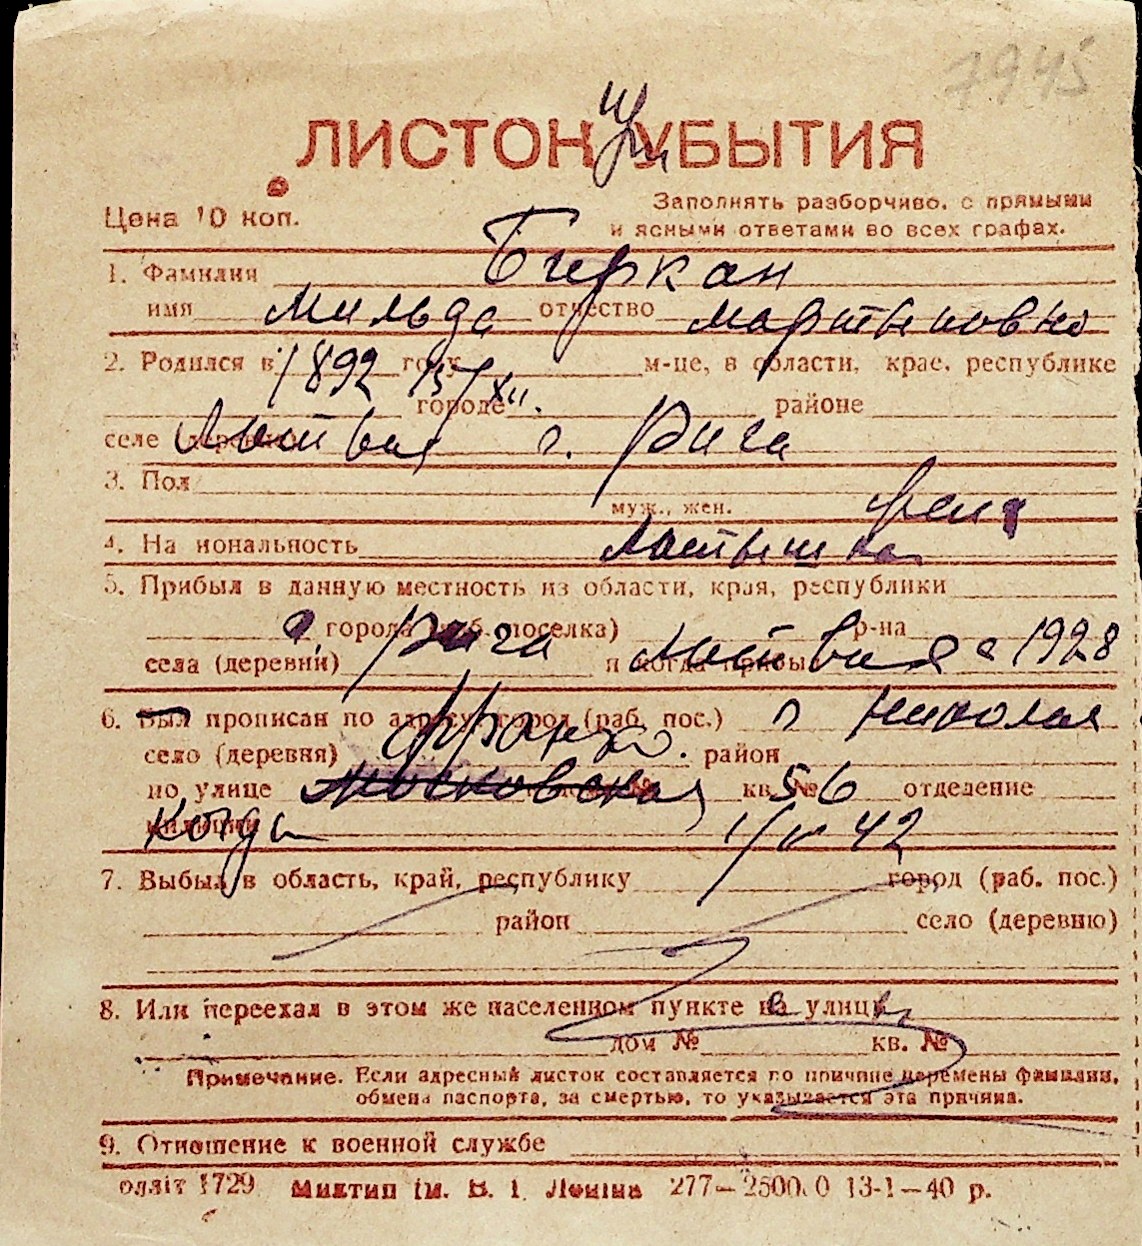 7945
ЛИСТОК УБЫТИЯ
Цена 10 коп.
Заполнять разборчиво, с прямыми
и ясными ответами во всех графах.
1. Фамилия Биркан
имя Мильда отчество Мартыновно
2. Родился в 1892 году 15/XII. м-це, в области, крае, республике
городе районе
селе (деревне) Латвия г. Рига
3. Пол муж., жен. жен
4. На иональность Латышка
5. Прибыл в данную местность из области, края, республики
г. города (раб. поселка) р-на
села (деревни) Рига и когда прибыл Латвия с 1928
6. Был прописан по адресу: город (раб. пос.) г Николая
село (деревня) Франко. район
по улице Московская № кв. № 56 отделение
милиции Когда 42
7. Выбыл в область, край, республику город (раб. пос.)
район село (деревню)
8. Или переехал в этом же населенном пункте на улицу
дом № кв. №
Примечание. Если адресный листок составляется по причине перемены фамилии,
обмена паспорта, за смертью, то указывается эта причина.
9. Отношение к военной службе
олліт 1729 Миктип ім. В. І. Леніна 277—2500.0 13-1—40 р.